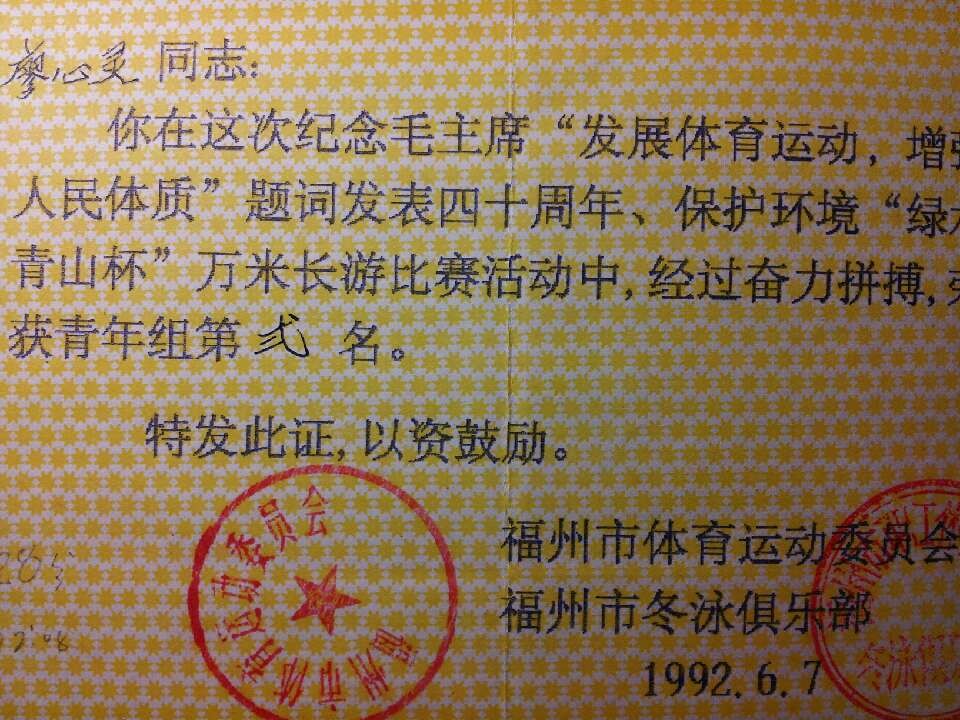 廖心灵 同志:
你在这次纪念毛主席“发展体育运动, 增强
人民体质”题词发表四十周年、保护环境“绿水
青山杯”万米长游比赛活动中, 经过奋力拼搏, 荣
获青年组第 弍 名。
特发此证, 以资鼓励。
福州市体育运动委员会
福州市体育运动委员会
福州市冬泳俱乐部
冬泳俱
1992.6.7
28号